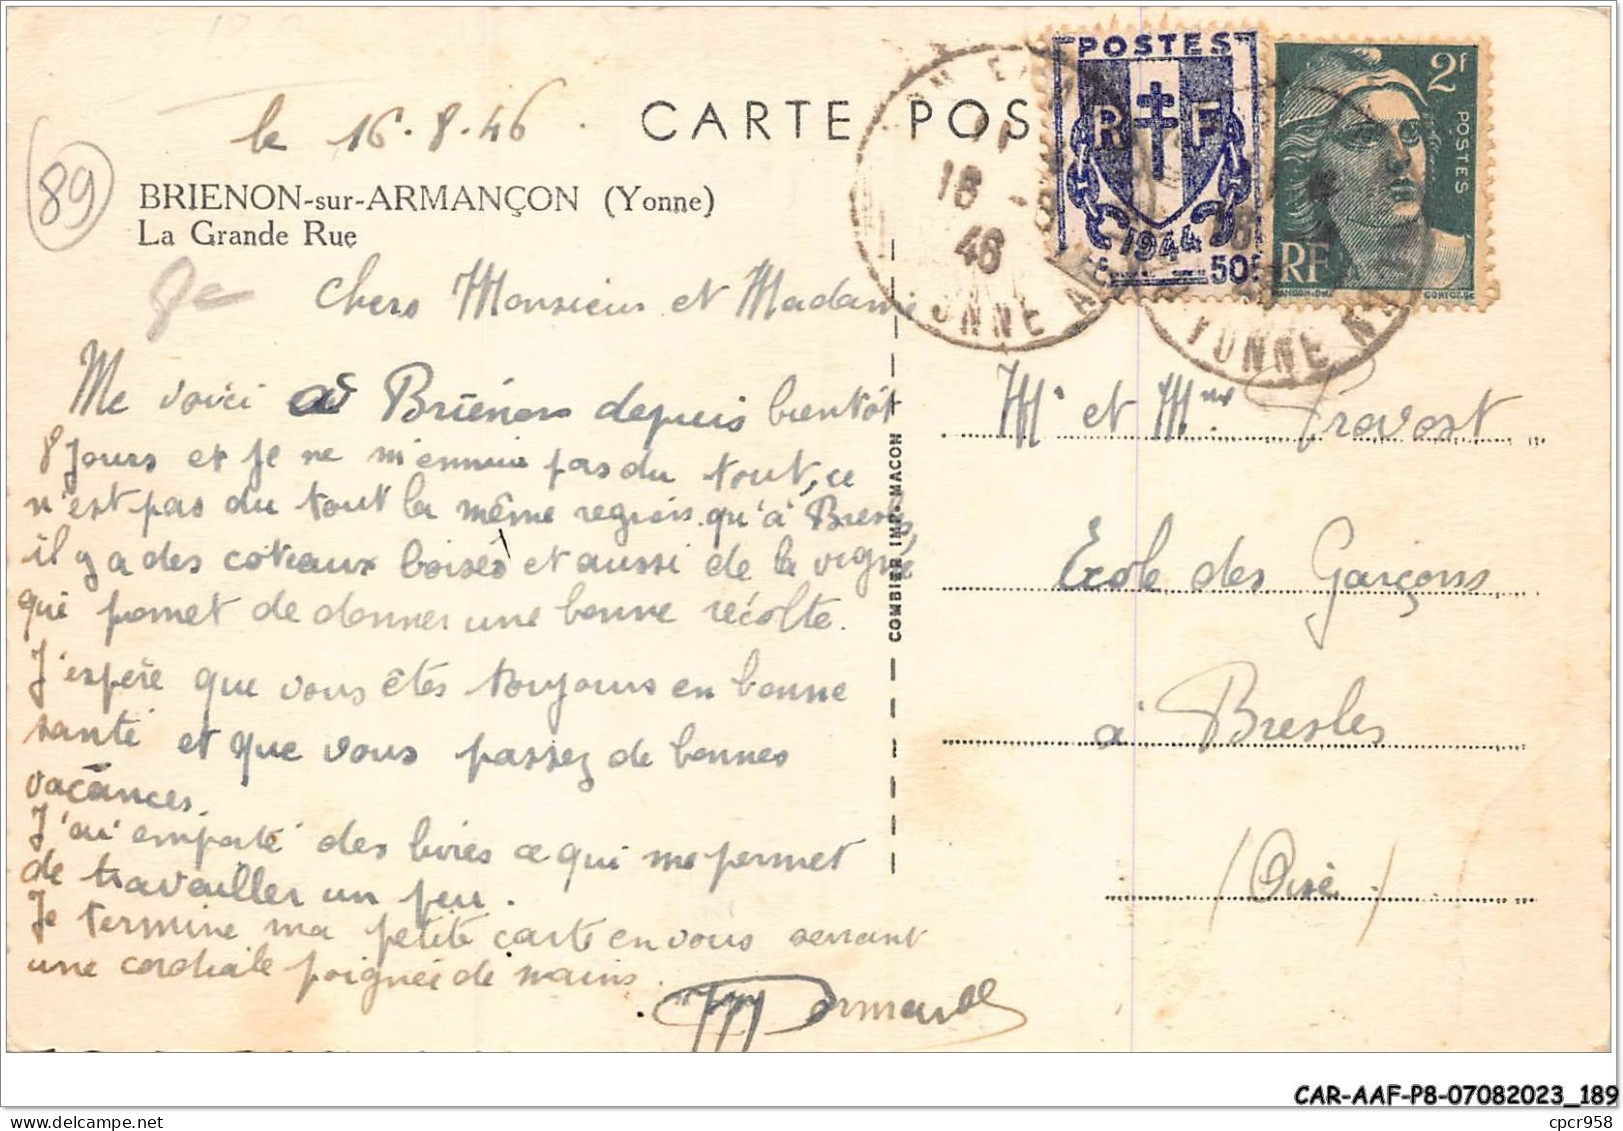 le 16.8.46
CARTE POS
89
BRIENON-sur-ARMANÇON (Yonne)
La Grande Rue
Chers Monsieur et Madame
Me voici à Brienon depuis bientôt
8 jours et je ne m'ennuie pas du tout, ce
n'est pas du tout la même region qu'à Bresles,
il y a des coteaux boisés et aussi de la vigne
qui promet de donner une bonne récolte.
J'espère que vous êtes toujours en bonne
santé et que vous passez de bonnes
vacances.
J'ai emporté des livres ce qui me permet
de travailler un peu.
Je termine ma petite carte en vous serrant
une cordiale poignée de mains.
COMBIER IMP. MACON
POSTES
RF
1944
50F
2F
POSTES
RF
18 -8
46
YONNE
YONNE
Mr et Mme Pravost
Ecole des Garçons
à Bresles
(Oise)
CAR-AAF-P8-07082023_189
cpcr958